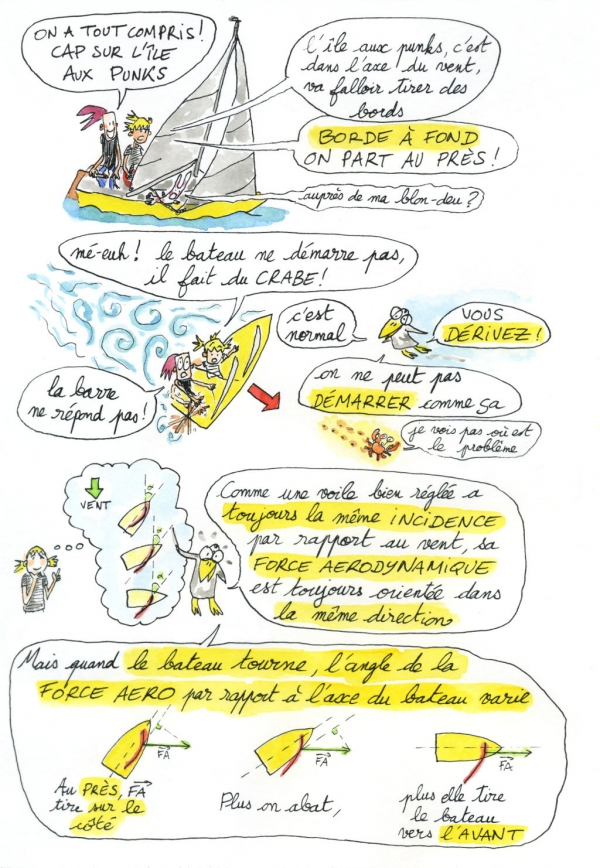 ON A TOUT COMPRIS!
CAP SUR L'ÎLE
AUX PUNKS
l'île aux punks, c'est
dans l'axe du vent,
va falloir tirer des
bords
BORDE À FOND
ON PART AU PRÈS!
auprès de ma blon-deu?
mé-euh! le bateau ne démarre pas,
il fait du CRABE!
c'est
normal
VOUS
DÉRIVEZ!
la barre
ne répond pas!
on ne peut pas
DÉMARRER comme ça
je vois pas où est
le problème
VENT
α
α
α
Comme une voile bien réglée a
toujours la même INCIDENCE
par rapport au vent, sa
FORCE AERODYNAMIQUE
est toujours orientée dans
la même direction
Mais quand le bateau tourne, l'angle de la
FORCE AERO par rapport à l'axe du bateau varie
FA
FA
FA
Au PRÈS, FA
tire sur le
côté
Plus on abat,
plus elle tire
le bateau
vers l'AVANT